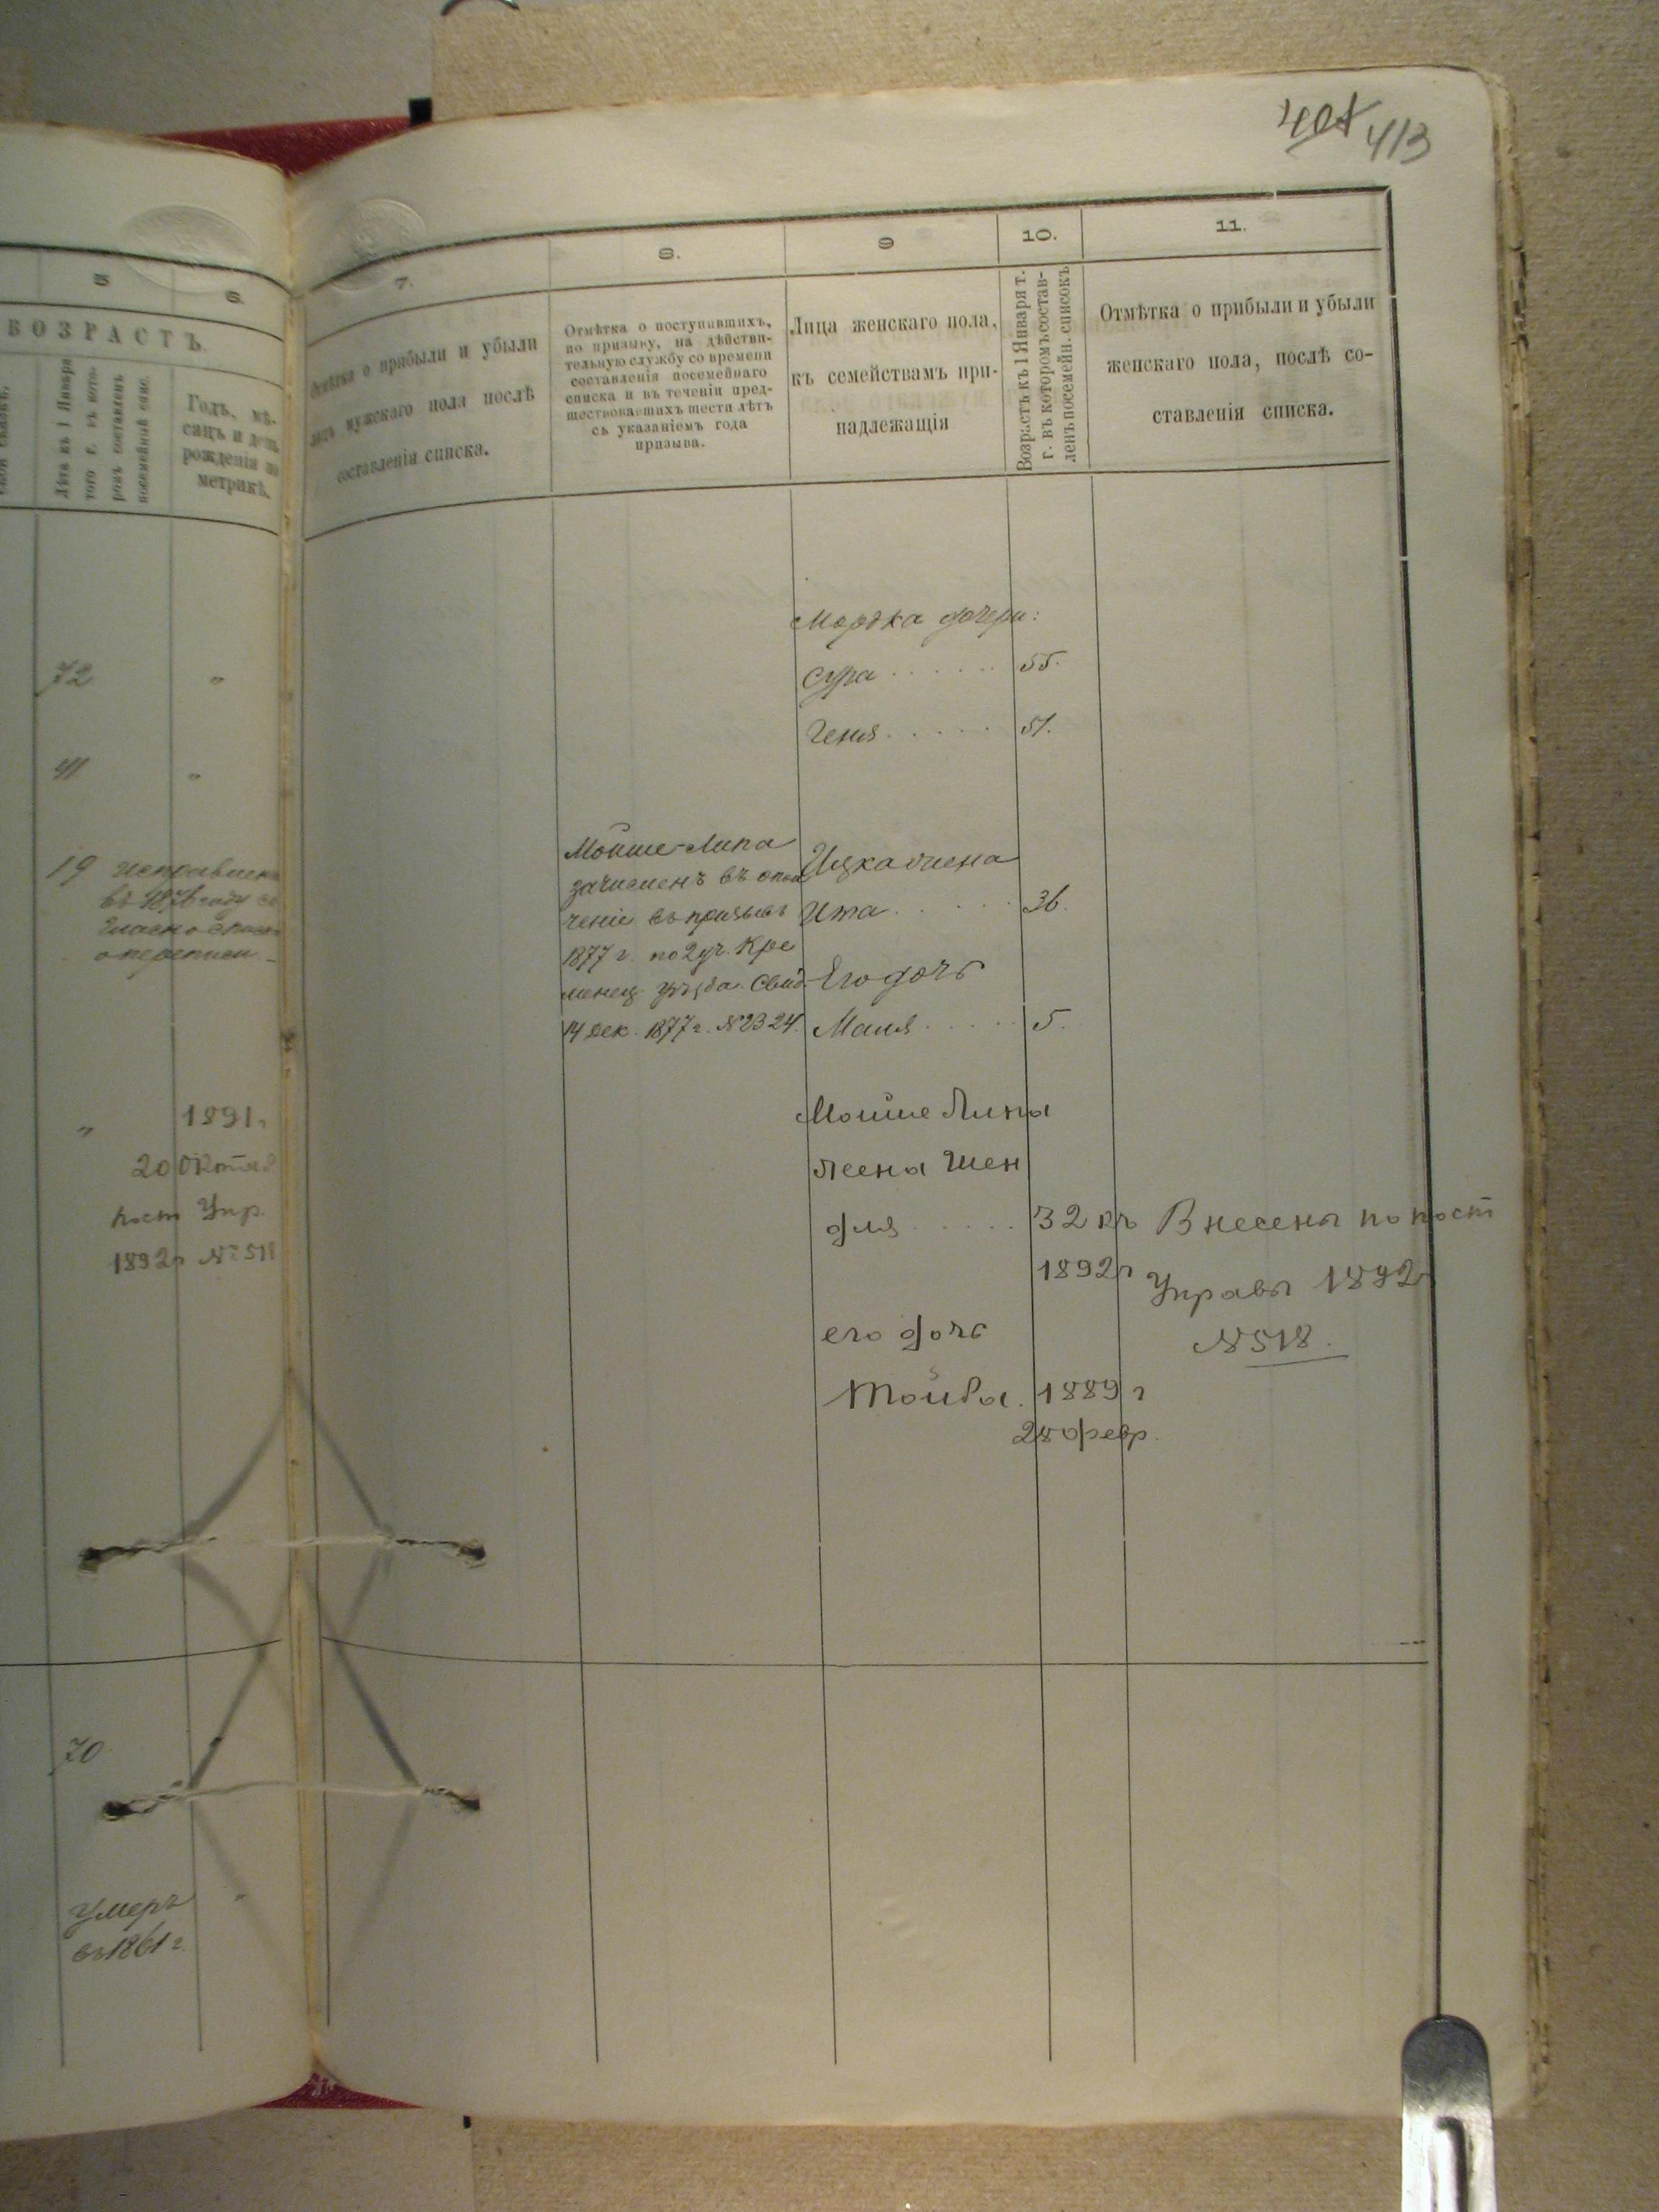 413
5
6.
ВОЗРАСТЪ.
Лѣта къ 1 Января
того г. въ кото-
ромъ составленъ
посемейный спис.
Годъ, мѣ-
сяцъ и день
рожденія по
метрикѣ.
72 "
41 "
19 исправлено
въ 1876 году со
1891 г.
20 Октяб
пост Упр.
1892 г № 518
70
умеръ
въ 1861 г.
7.
Отмѣтка о прибыли и убыли
лицъ мужскаго пола послѣ
составленія списка.
8.
Отмѣтка о поступившихъ,
по призыву, на дѣйстви-
тельную службу со времени
составленія посемейнаго
списка и въ теченіи пред-
шествовавшихъ шести лѣтъ
съ указаніемъ года
призыва.
Мойше-Липа
зачисленъ въ опол
ченіе въ призывъ
1877 г. по 2 уч. Кре
менец. уѣзда. Свид.
14 Дек. 1877 г. № 2324.
9
Лица женскаго пола,
къ семействамъ при-
надлежащія
10.
Возрастъ къ 1 Января т.
г. въ которомъ состав-
ленъ посемейн. списокъ
11.
Отмѣтка о прибыли и убыли
женскаго пола, послѣ со-
ставленія списка.
Мордка дочери:
Сура . . . . . . 55.
Геня . . . . . 51.
Ицка жена
Ита . . . . . 36.
Его дочь
Маля . . . . . 5.
Мойше Липы
жена Шен
для . . . . . 32 къ Внесены по пост
1892 г Управы 1892 г
его дочь № 518.
Тойба. 1889 г
28 февр.